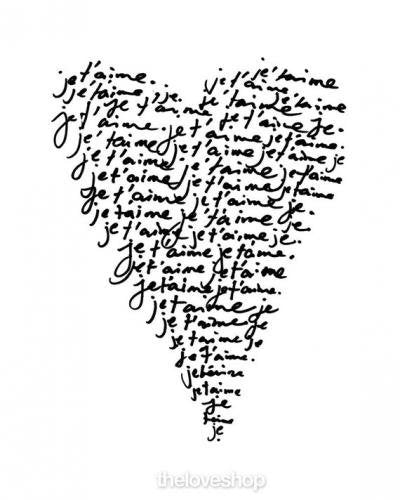 je t'aime. je t'aime
je t'aime, je. je t'aime je t'aime
je t'aime je t'aime je t'aime je.
je t'aime. je t'aime je t'aime.
je t'aime je t'aime je t'aime je
je t'aime je t'aime je t'aime
je t'aime je t'aime je t'aime
je t'aime je t'aime je.
je t'aime je t'aime je
je t'aime je t'aime je.
je t'aime je t'aime.
je t'aime je t'aime
je t'aime je t'aime.
je t'aime je
je t'aime je
je t'aime je
je t'aime.
je t'aime
je
je
theloveshop